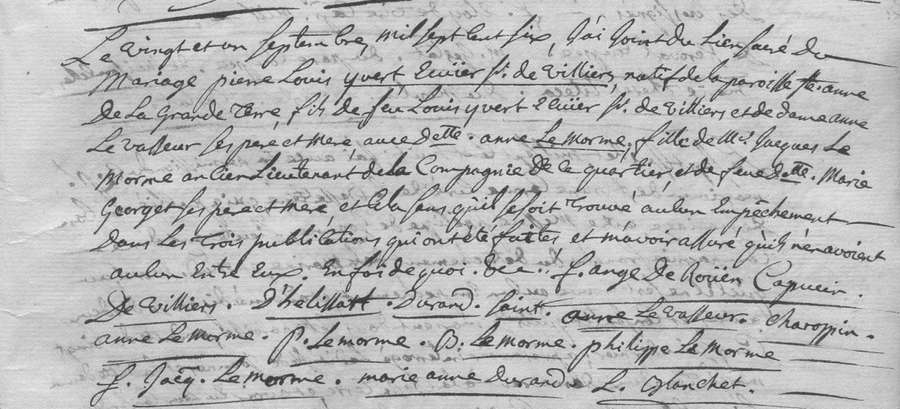 Le vingt et un septembre mil sept cent six, J'ai Joint du Lien sacré du
Mariage pierre Louis yvert Ecuier Sr. de Villiers, natif de la paroisse Ste. anne
De La Grande Terre, fils de feu Louis yvert Ecuier Sr. de Villiers et de dame anne
Le Vasseur ses pere et mere, avec Delle. anne Le Morme, fille de Mr. Jacques Le
Morme ancien Lieutenant de La Compagnie De ce quartier, et de feue Delle. Marie
Georget ses pere et mere et cela sans qu'il se soit Trouvé aucun Empêchement
Dans Les Trois publications qui ont été faittes et m'avoir assuré qu'ils n'en avoient
aucun Entre Eux. En foi de quoi. &c.. f. ange De Roüen Capucin.
De Villiers. D'helissart. Durand. Saint. anne Le Vasseur. Charoppin.
anne Le morme. P. Lemorme. D. Lemorme. philippe Le Morme
J. Jacq. Le morme. marie anne Durand. L. Blanchet.